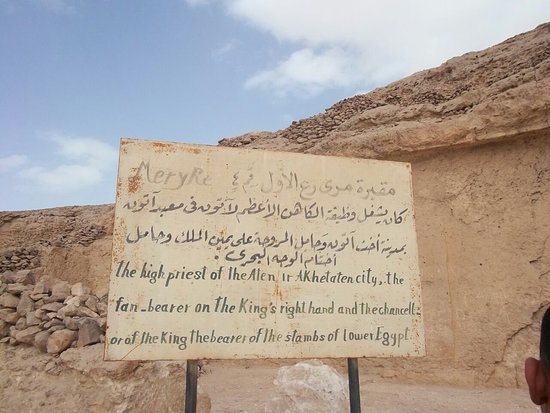 MeryRe مقبرة مرى رع الأول رقم ٤
كان يشغل وظيفة الكاهن الأعظم لآتون فى معبد آتون
بمدينة اخت آتون وحامل المروحة على يمين الملك وحامل
أختام الوجه البحرى .
the high priest of the Aten ir AKhetaten city. the
fan-bearer on the King's right hand and the chancell-
or of the King the bearer of the stambs of lower Egypt.